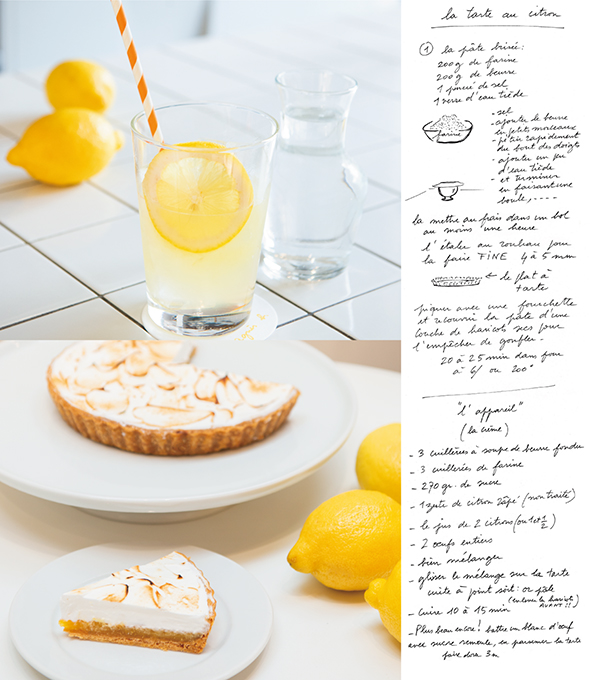 la tarte au citron
① la pâte brisée:
200g de farine
200g de beurre
1 pincée de sel
1 verre d'eau tiède
- sel
- ajouter le beurre
en petits morceaux
- pétrir rapidement
du bout des doigts
- ajouter un peu
d'eau tiède
- et terminer
en faisant une
boule, ----
farine
la mettre au frais dans un bol
au moins une heure
l'étaler au rouleau pour
la faire FINE 4 à 5 mm
← le plat à
tarte
piquer avec une fourchette
et recouvrir la pâte d'une
couche de haricots secs pour
l'empêcher de gonfler -
20 à 25 min dans four
à 6/ ou 200°
"l'appareil"
(la crème)
- 3 cuillères à soupe de beurre fondu
- 3 cuillerées de farine
- 270 gr. de sucre
- 1 zeste de citron râpé (non traité)
- le jus de 2 citrons (ou 1 et 1/2)
- 2 oeufs entiers
- bien mélanger
- glisser le mélange sur la tarte
cuite à point
(enlever les haricots
AVANT !!)
- Cuire 10 à 15 min
- Plus beau encore! battre un blanc d'oeuf
avec sucre semoule, en parsemer la tarte
faire dorer 3 m